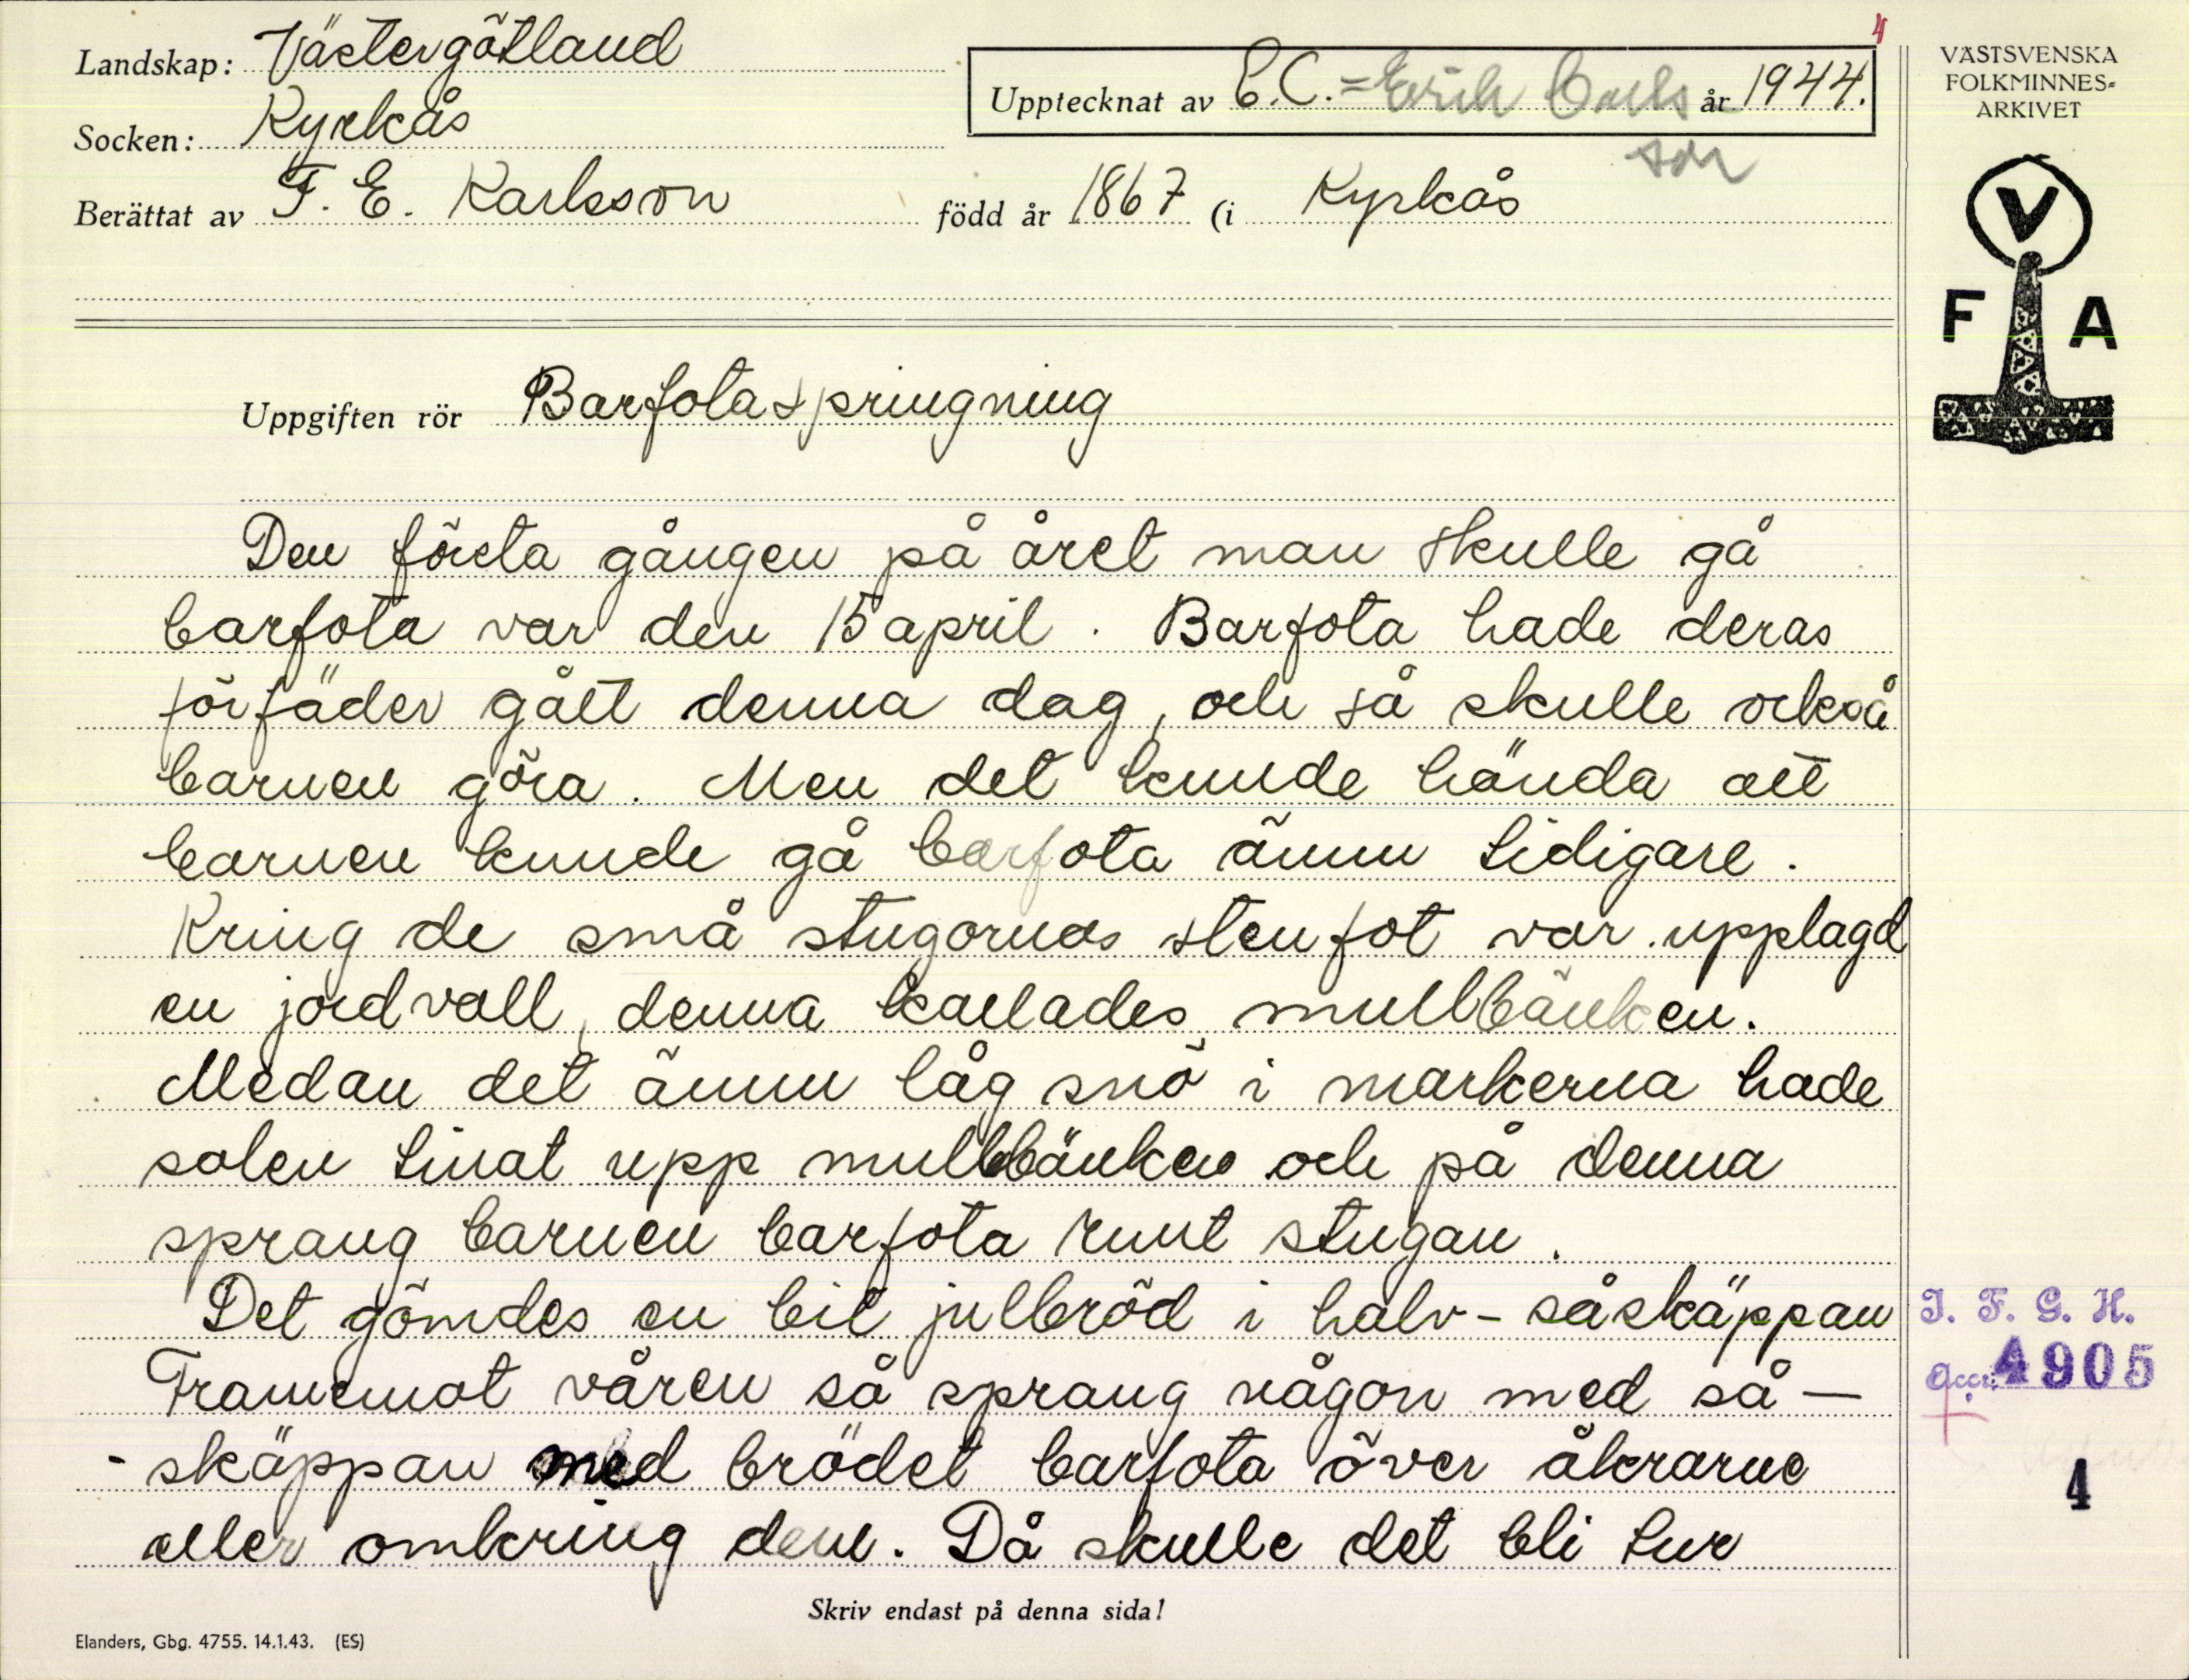 4
Landskap: Västergötland
Upptecknat av E.C. = Erik Carls- år 1944.
son
Socken: Kyrkås
Berättat av F. E. Karlsson född år 1867 (i Kyrkås
VÄSTSVENSKA
FOLKMINNES=
ARKIVET
V
F A
Uppgiften rör Barfotaspringning
Den första gången på året man skulle gå
barfota var den 15 april. Barfota hade deras
förfäder gått denna dag, och så skulle också
barnen göra. Men det kunde hända att
barnen kunde gå barfota ännu tidigare.
Kring de små stugornas stenfot var upplagd
en jordvall, denna kallades mullbänken.
Medan det ännu låg snö i markerna hade
solen tinat upp mullbänken och på denna
sprang barnen barfota runt stugan.
Det gömdes en bit julbröd i halv-såskäppan
Framemot våren så sprang någon med så-
-skäppan med brödet barfota över åkrarne
eller omkring dem. Då skulle det bli tur
I. F. G. H.
acc. 4905
4
Skriv endast på denna sida!
Elanders, Gbg. 4755. 14.1.43. (ES)